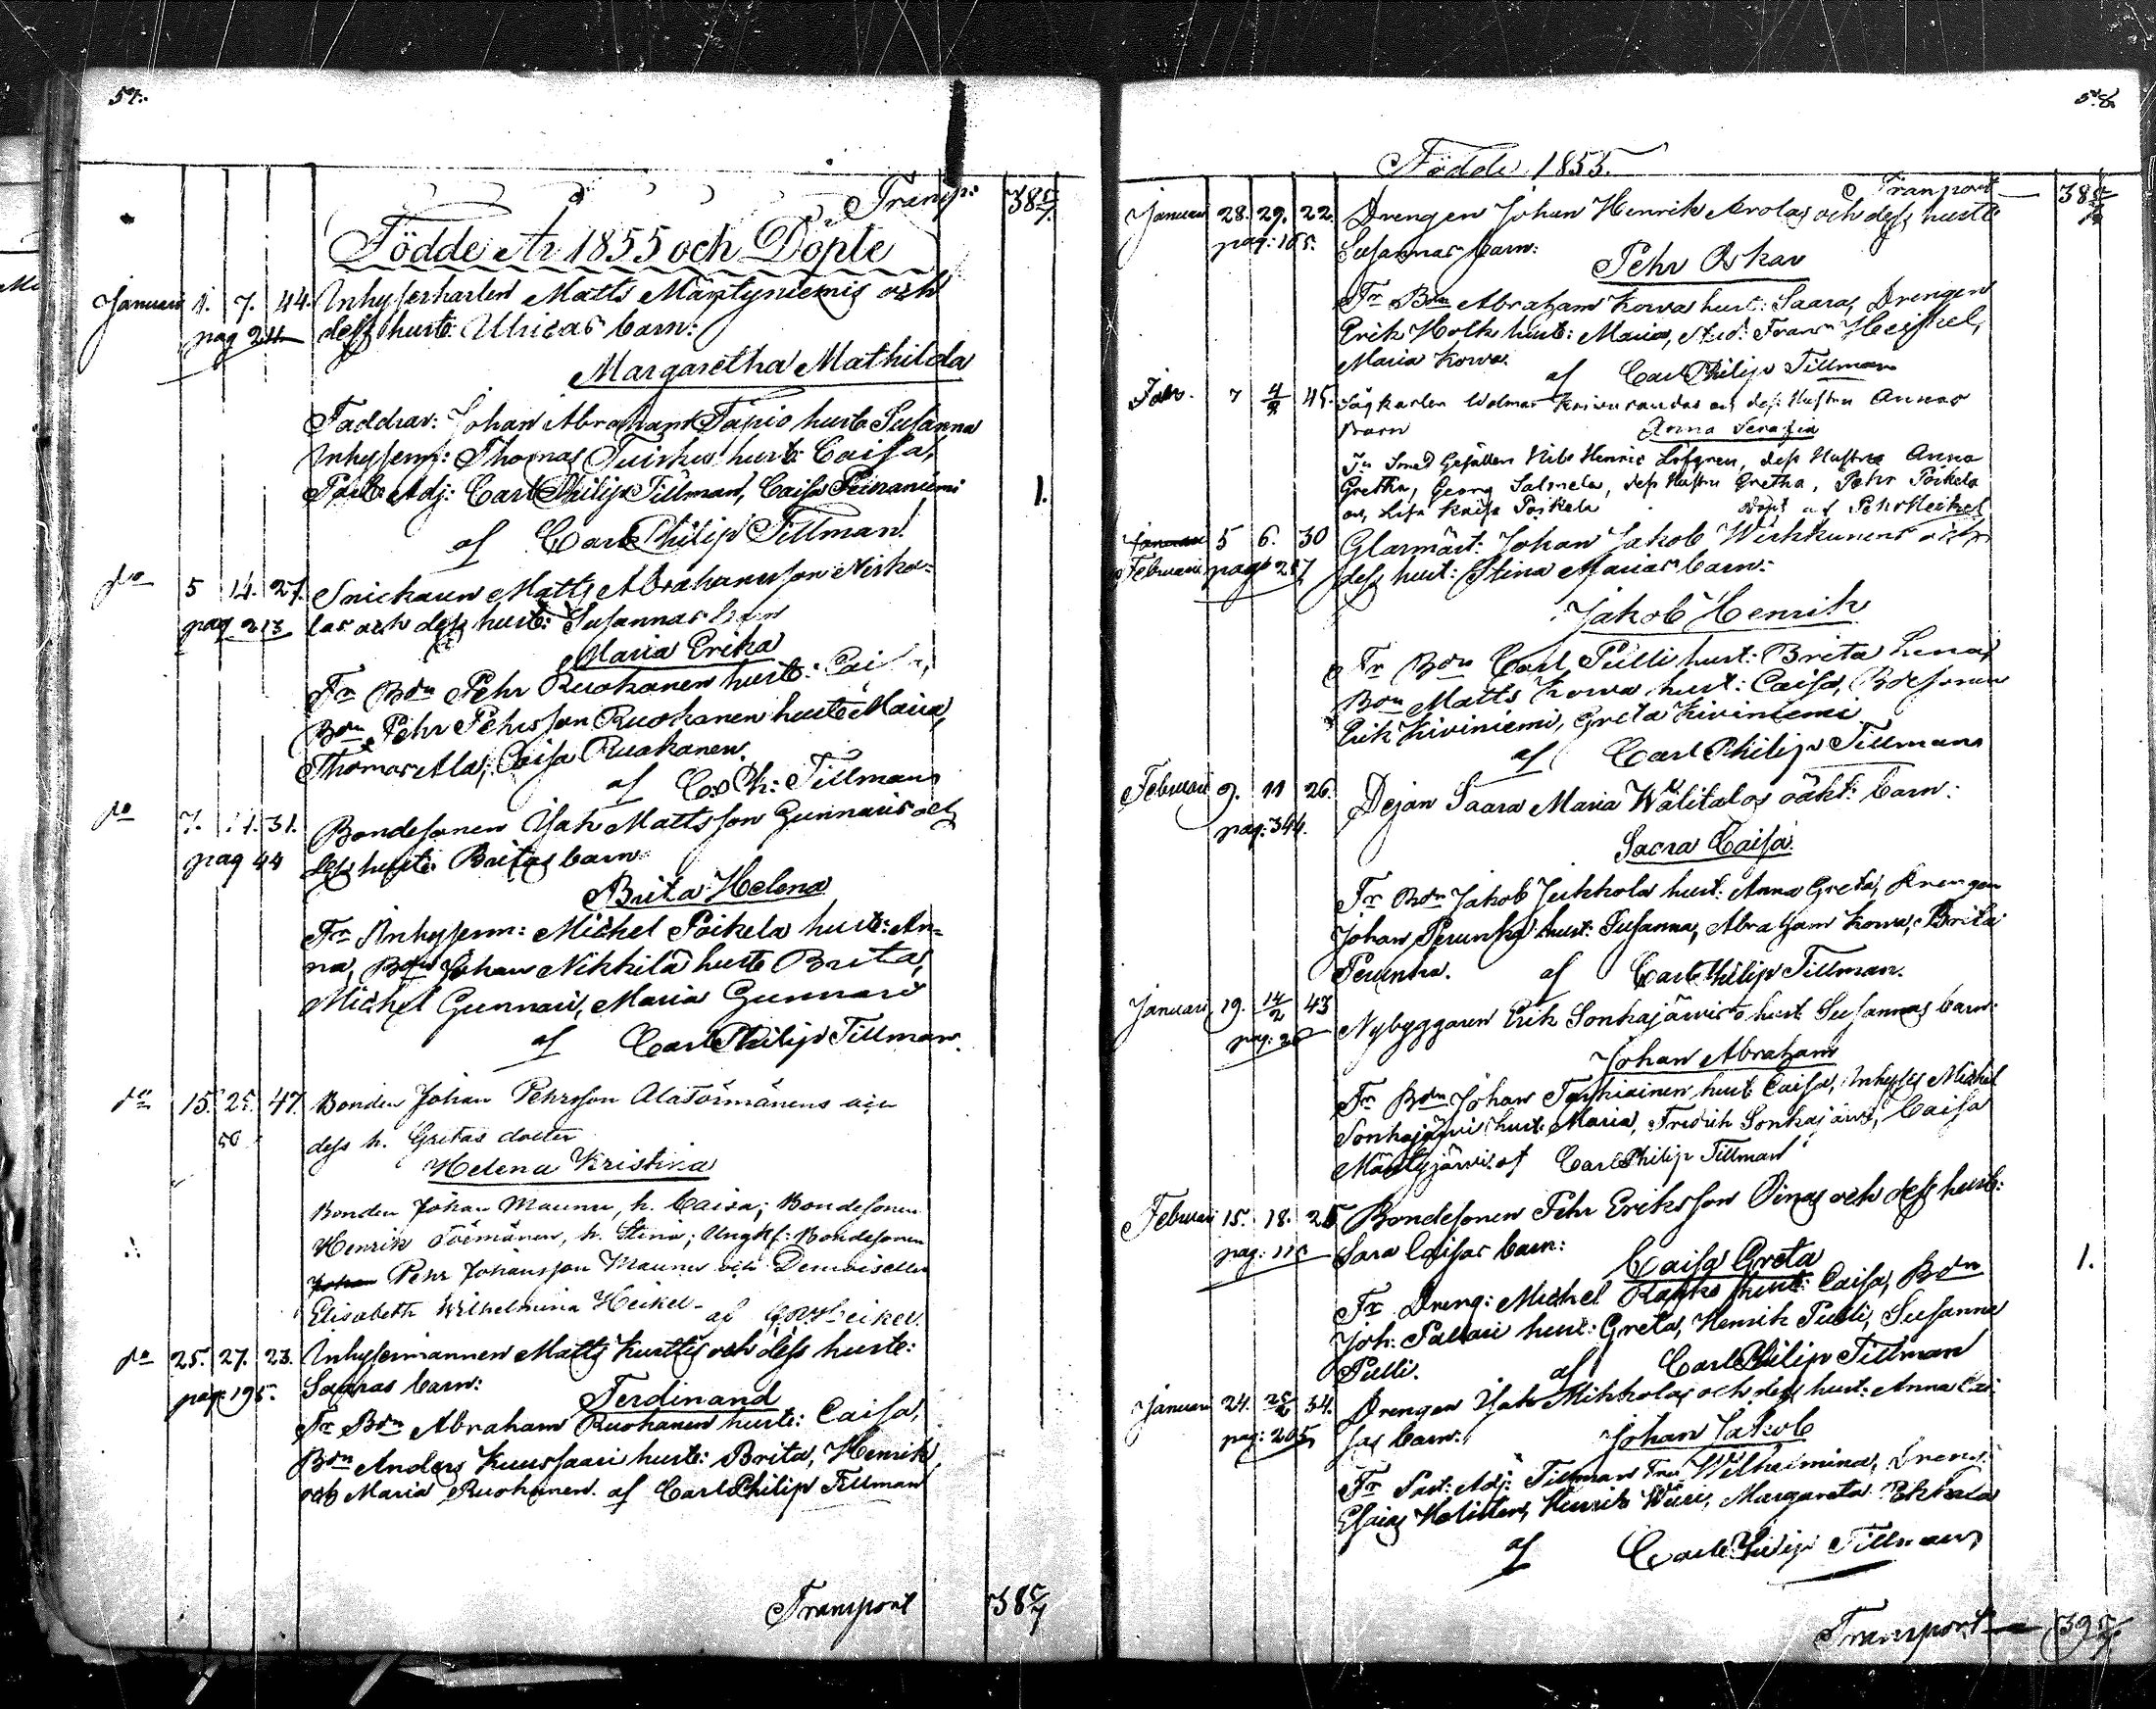 57.
Transp: 38 5/7.
Födde År 1855 och Döpte
Januari 4. 7. 44. Inhyseskarlen Matts Mäntyniemis och
pag 24 dess hust: Ulricas barn:
Margaretha Mathilda
Faddrar: Johan Abrahamss Tapio hust: Susanna
Inhysesm: Thomas Tuiskus hust: Caisa,
Past: Adj: Carl Philip Tillman, Caisa 1.
af Carl Philip Tillman.
do 5 14. 27. Snickaren Matts Abrahamsson Niska-
pag 213 las och dess hust: Susannas barn
Maria Erika
Fr Bdn Pehr Ruokanen hust: Caisa,
Bdn Pehr Pehrsson Ruokanen hust: Maria,
Thomas Ala, Caisa Ruokanen.
af C. Ph: Tillman
do 7. 14. 31. Bondesonen Isak Mattsson Gunnaris och
pag 44 dess hust: Britas barn
Brita Helena
Fr Inhysesm: Michel Poikela hust: An-
na, Bdn Johan Nikkilä hust: Brita,
Michel Gunnari, Maria Gunnari
af Carl Philip Tillman.
do 15. 25. 47. Bonden Johan Pehrsson Alatörmänens och
50 dess h. Gretas dotter
Helena Kristina
Bonden Johan Maunu, h. Caisa; Bondesonen
Henrik Törmänen, h. Stina; Ungk: Bondesonen
Pehr Johansson Maunu och Demoiselle
Elisabeth Wilhelmina Heikel- af Heikel.
do 25. 27. 23. Inhysesmannen Matts Kurttis och dess hust:
pag: 195. Saaras barn:
Ferdinand
Fr Bdn Abraham Ruokanen hust: Caisa,
Bdn Anders Kuusjaari hust: Brita, Henrik
och Maria Ruokanen. af Carl Philip Tillman
Transport 38 5/7
58.
Födde 1855.
Transport 38
Januari 28. 29. 22. Drengen Johan Henrik Arolas och dess hust:
pag: 165. Susannas barn:
Pehr Oskar
Fr Bdn Abraham Kowa hust: Saara, Drengen
Erik Holk hust: Maria, Stud: Frans Heikel,
Maria Kowa. af Carl Philip Tillman
7 4/2 45. Sågkarlen Wolmar och dess Hustru Annas
Barn Anna Serafia
Fr Smed Gesällen Nils Henric Löfgren, dess Hustru Anna
Gretha, Georg Salmela, dess Hustru Gretha, Pehr Poikela
och Lisa Kaisa Poikela döpt af Pehr Heikel
Januari 5 6. 30 Glasmäst: Johan Jakob Wirkkunens och
Februari pag 217 dess hust: Stina Marias barn:
Jakob Henrik
Fr Bdn Carl Pulli hust: Brita Lena,
Bdn Matts Kowa hust: Caisa, Bdesonen
Erik Kiviniemi, Greta Kiviniemi
af Carl Philip Tillman
Februari 9. 11 26. Dejan Saara Maria Wälitalos oäkt: barn:
pag: 344.
Saara Caisa
Fr Bdn Jakob Jukkola hust: Anna Greta, Drengen
Johan Perunka hust: Susanna, Abraham Kowa, Brita
Perunka. af Carl Philip Tillman.
Januari 19. 14/2 43 Nybyggaren Erik Sonkajärvis o hust Susannas barn:
Johan Abraham
Fr Bdn Johan hust Caisa, Inhyses Michel
Sonkajärvi hust: Maria, Fredrik Sonkajärvi, Caisa
Mäntyjärvi. af Carl Philip Tillman
Februari 15. 18. 25 Bondesonen Pehr Eriksson Oinas och dess hust:
Sara Caisas barn: 1.
Caisa Greta
Fr Dreng: Michel hust: Caisa, Bdn
Joh: Pallari hust: Greta, Henrik Pulli, Susanna
Pulli. af Carl Philip Tillman
Januari 24. 25/2 34. Drengen Isak Mikkolas och dess hust: Anna Cai-
pag: 205 sas barn:
Johan Jakob
Fr Past: Adj: Tillman Fru Wilhelmina, Dreng:
Esaias Henrik Margareta
af Carl Philip Tillman
Transport 39